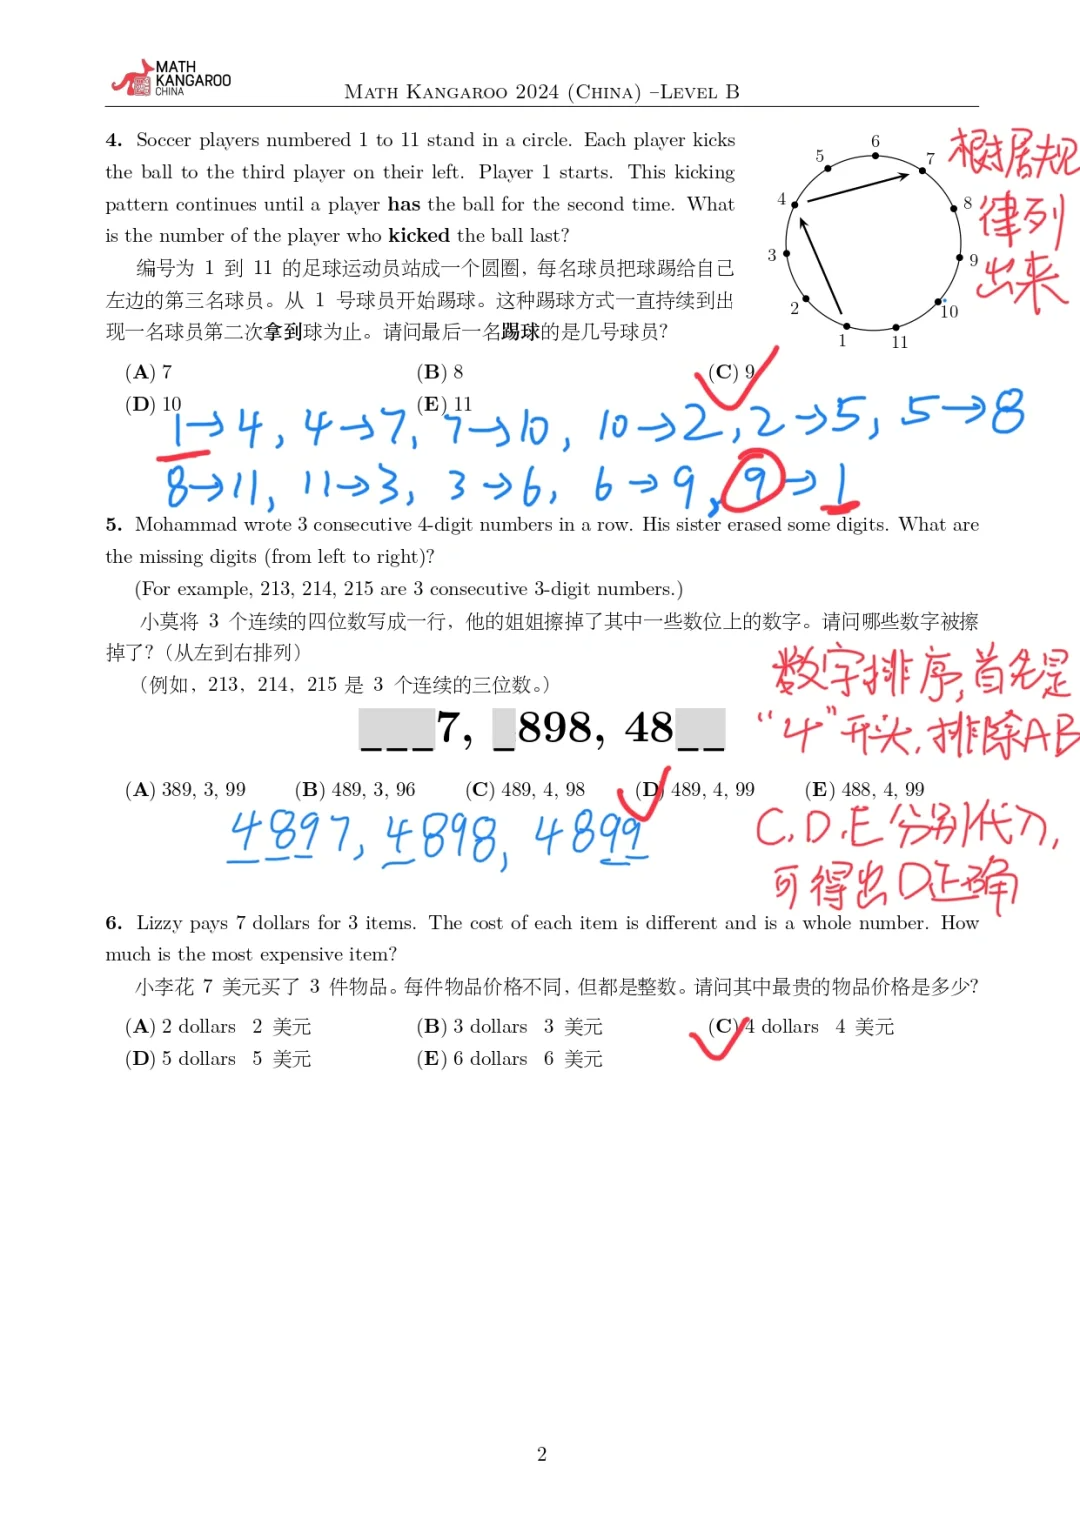 MATH
KANGAROO
CHINA
MATH KANGAROO 2024 (CHINA) –LEVEL B
4. Soccer players numbered 1 to 11 stand in a circle. Each player kicks
the ball to the third player on their left. Player 1 starts. This kicking
pattern continues until a player has the ball for the second time. What
is the number of the player who kicked the ball last?
编号为 1 到 11 的足球运动员站成一个圆圈，每名球员把球踢给自己
左边的第三名球员。从 1 号球员开始踢球。这种踢球方式一直持续到出
现一名球员第二次拿到球为止。请问最后一名踢球的是几号球员？
1
2
3
4
5
6
7
8
9
10
11
根据规
律列
出来
(A) 7
(B) 8
(C) 9
(D) 10
(E) 11
1→4, 4→7, 7→10, 10→2, 2→5, 5→8
8→11, 11→3, 3→6, 6→9, 9→1
5. Mohammad wrote 3 consecutive 4-digit numbers in a row. His sister erased some digits. What are
the missing digits (from left to right)?
(For example, 213, 214, 215 are 3 consecutive 3-digit numbers.)
小莫将 3 个连续的四位数写成一行，他的姐姐擦掉了其中一些数位上的数字。请问哪些数字被擦
掉了？（从左到右排列）
（例如，213，214，215 是 3 个连续的三位数。）
_ _ _7, _898, 48_ _
数字排序,首先是
“4”开头,排除AB
(A) 389, 3, 99
(B) 489, 3, 96
(C) 489, 4, 98
(D) 489, 4, 99
(E) 488, 4, 99
4897, 4898, 4899
C,D,E分别代入,
可得出D正确
6. Lizzy pays 7 dollars for 3 items. The cost of each item is different and is a whole number. How
much is the most expensive item?
小李花 7 美元买了 3 件物品。每件物品价格不同，但都是整数。请问其中最贵的物品价格是多少？
(A) 2 dollars 2 美元
(B) 3 dollars 3 美元
(C) 4 dollars 4 美元
(D) 5 dollars 5 美元
(E) 6 dollars 6 美元
2